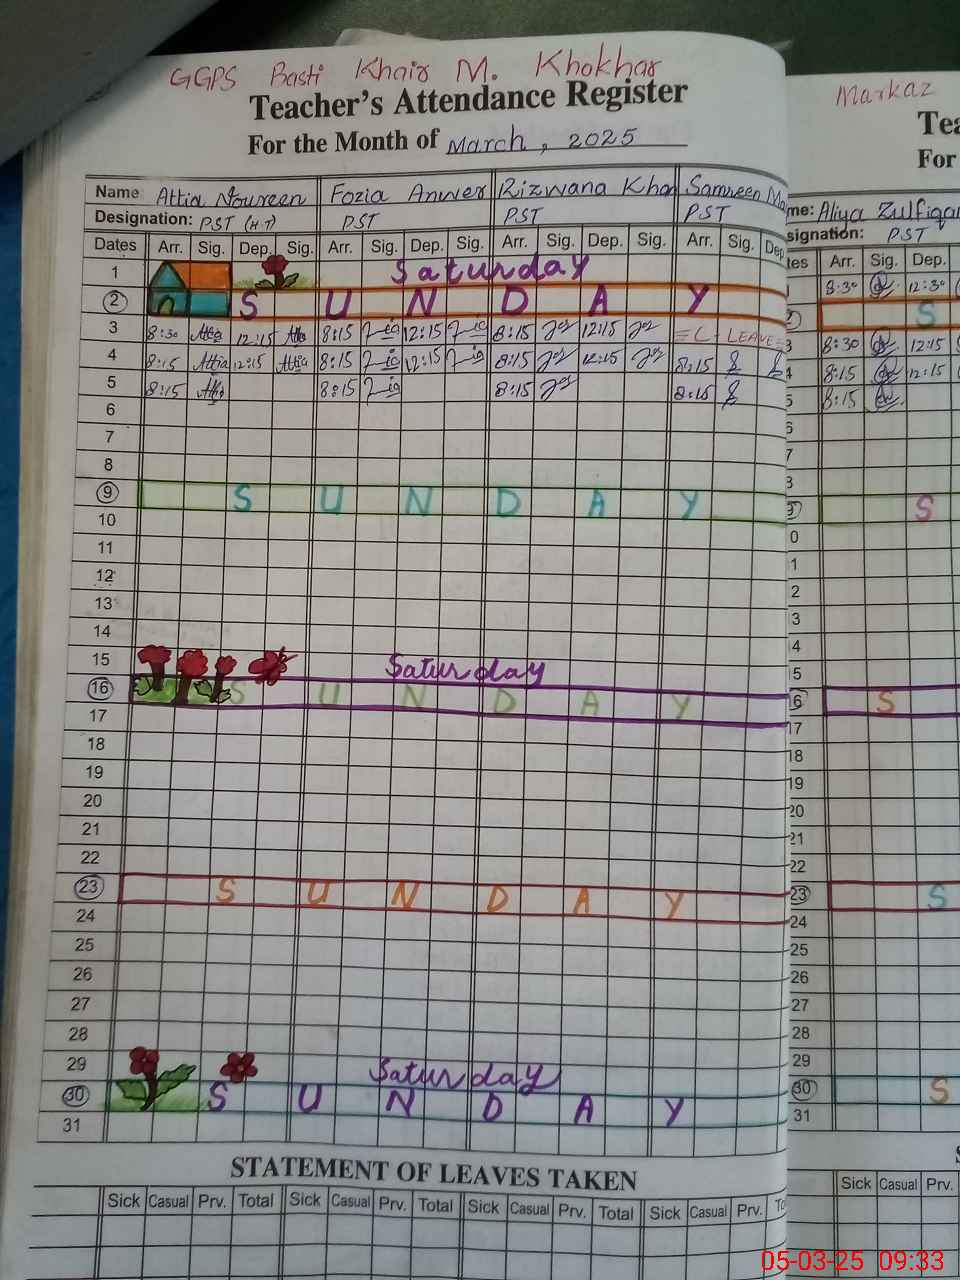 GGPS Basti Khair M. Khokhar
Teacher's Attendance Register
For the Month of March, 2025
Name Attia Noureen Fozia Anwer Rizwana Kha Samreen Ma
Designation: PST (H.T) PST PST PST
Dates Arr. Sig. Dep. Sig. Arr. Sig. Dep. Sig. Arr. Sig. Dep. Sig. Arr. Sig. Dep
1 Saturday
2 S U N D A Y
3 8:30 Attia 12:15 8:15 12:15 8:15 12:15 = C - LEAVE =
4 8:15 Attia 12:15 Attia 8:15 12:15 8:15 12:15 8:15
5 8:15 8:15 8:15 8:15
6
7
8
9 S U N D A Y
10
11
12
13
14
15 Saturday
16 S U N D A Y
17
18
19
20
21
22
23 S U N D A Y
24
25
26
27
28
29 Saturday
30 S U N D A Y
31
STATEMENT OF LEAVES TAKEN
Sick Casual Prv. Total Sick Casual Prv. Total Sick Casual Prv. Total Sick Casual Prv. To
Markaz
Tea
For
me: Aliya Zulfiqar
signation: PST
tes Arr. Sig. Dep.
8:30 12:30
2 S
3 8:30 12:15
4 8:15 12:15
5 8:15
6
7
8
9 S
0
1
2
3
4
5
6 S
17
18
19
20
21
22
23 S
24
25
26
27
28
29
30 S
31
S
Sick Casual Prv.
05-03-25 09:33